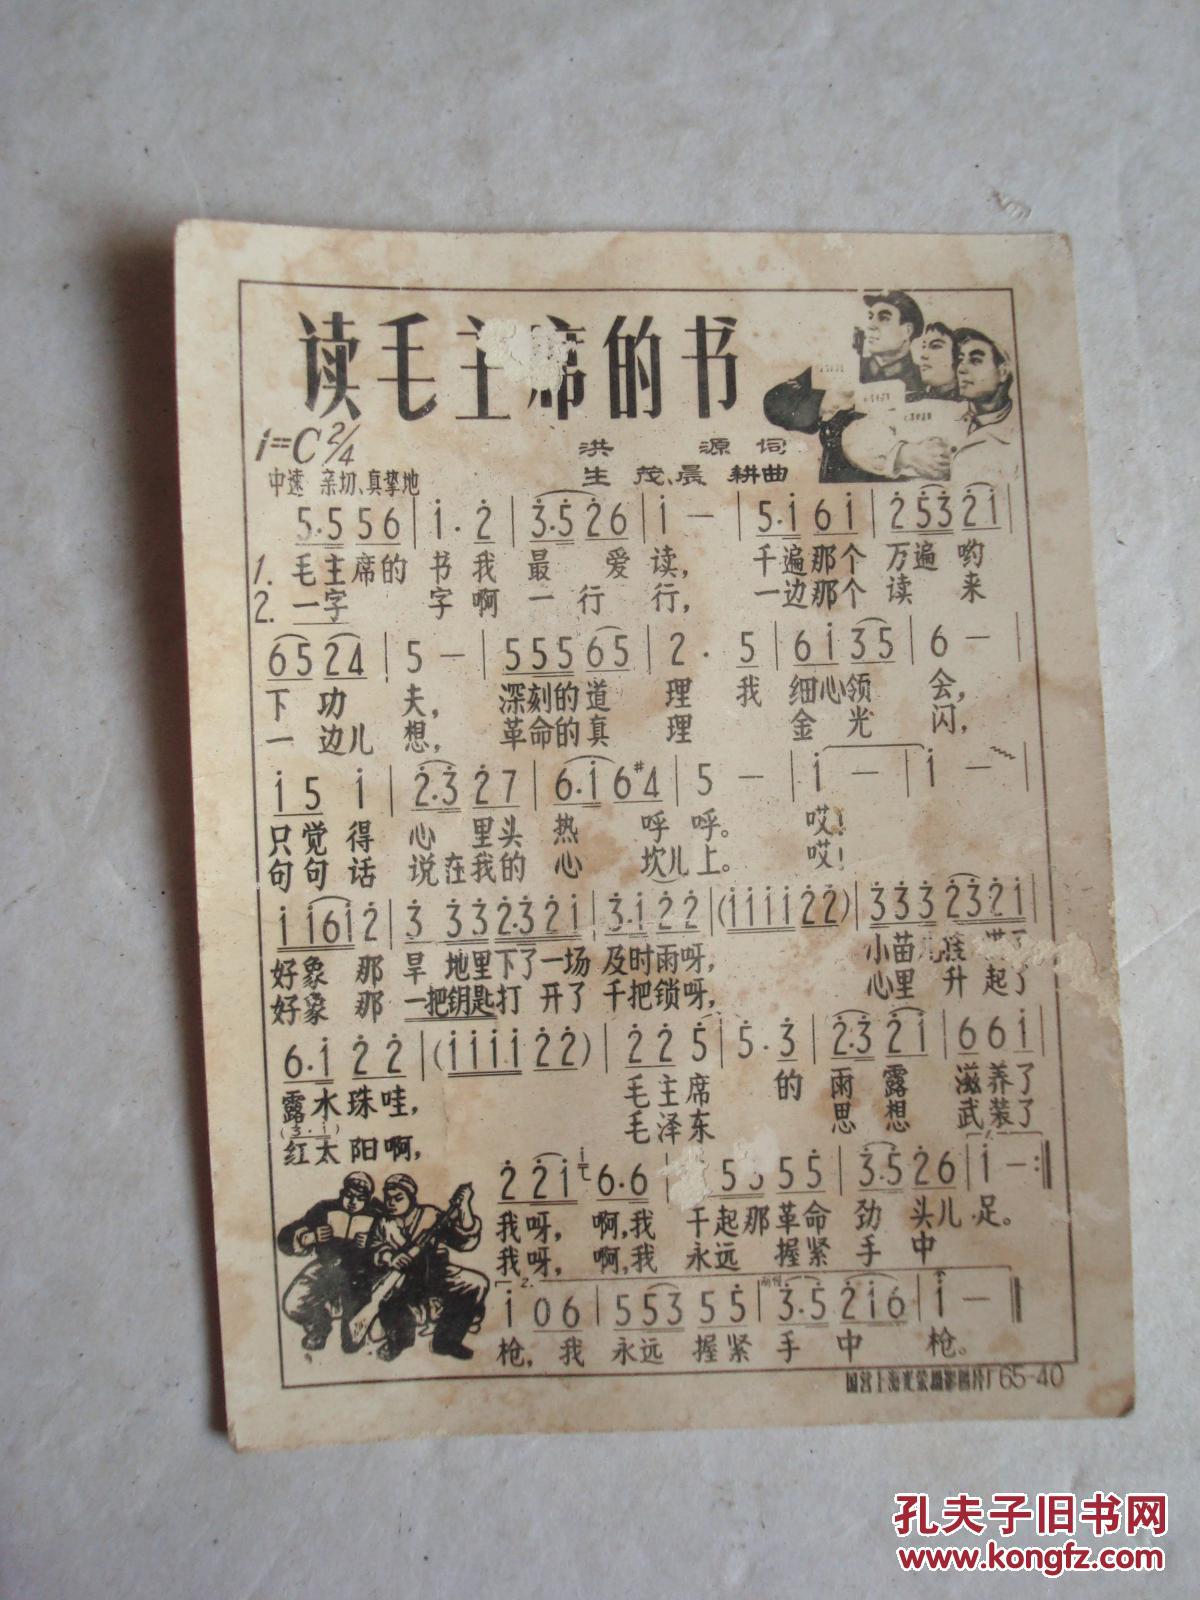 读毛主席的书
1=C 2/4
洪 源 词
中速 亲切、真挚地
生 茂、晨 耕曲
5·5 5 6 | i · 2 | 3·5 2 6 | i — | 5·i 6 i | 2 5 3 2 i |
1. 毛主席的 书 我 最 爱 读, 千遍那个 万遍 哟
2. 一字 字 啊 一 行 行, 一边那个 读 来
6 5 2 4 | 5 — | 5 5 5 6 5 | 2 · 5 | 6 i 3 5 | 6 — |
下 功 夫, 深刻的道 理 我 细心领 会,
一 边儿 想, 革命的真 理 金 光 闪,
i 5 i | 2·3 2 7 | 6·i 6 #4 | 5 — | i — | i — |
只觉 得 心 里头 热 呼 呼。 哎!
句句 话 说在我的 心 坎儿上。 哎!
i i 6 i 2 | 3 3 3 2·3 2 i | 3·i 2 2 | (i i i i 2 2) | 3 3 3 2 3 2 i |
好象 那 旱 地里下了一场 及时雨呀, 小苗儿
好象 那 一把钥匙打 开了 千把锁呀, 心里 升 起了
6·i 2 2 | (i i i i 2 2) | 2 2 5 | 5·3 | 2·3 2 i | 6 6 i |
露水珠哇, 毛主席 的 雨 露 滋养了
(3·i)
红太阳啊, 毛泽东 思 想 武装了
2 2 i 6·6 | 5 5 5 | 3·5 2 6 | i — :‖
我呀, 啊,我 干起那革命 劲 头儿 足。
我呀, 啊,我 永远 握紧 手 中
2.
i 0 6 | 5 5 3 5 5 | 3·5 2 i 6 | i — ‖
枪, 我 永远 握紧 手 中 枪。
65-40
孔夫子旧书网
www.kongfz.com